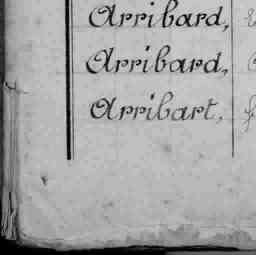 Arribard,
Arribard,
Arribart,